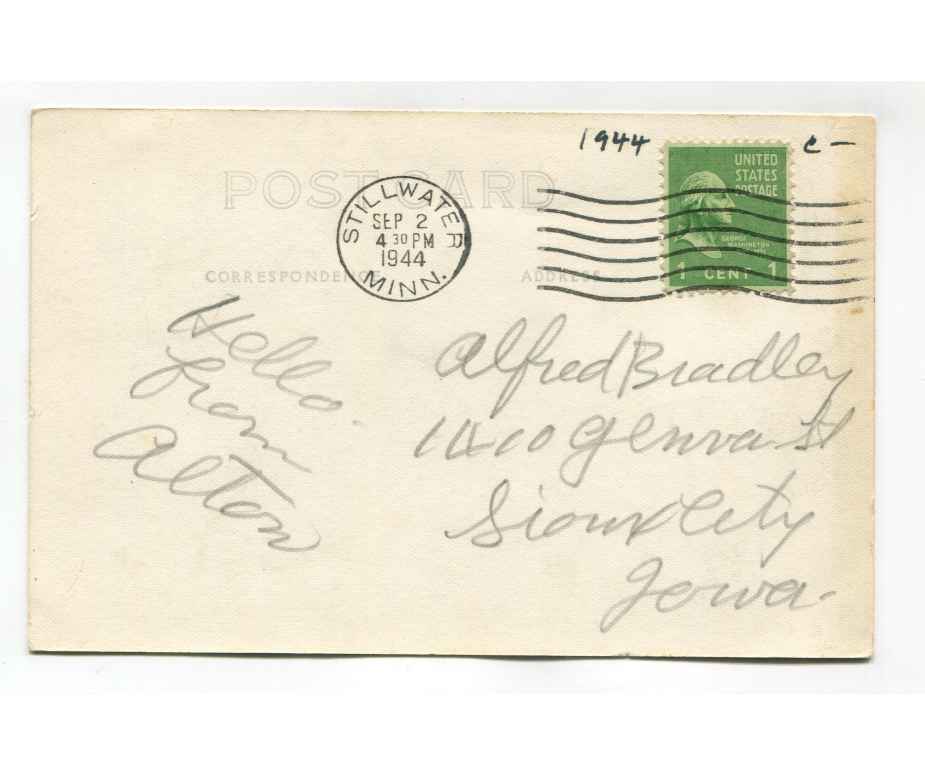 1944 c-
UNITED
STATES
POSTAGE
GEORGE
WASHINGTON
1 CENT 1
POST CARD
STILLWATER
SEP 2
4 30 PM
1944
MINN.
CORRESPONDENCE
ADDRESS
Hello
from
Alton
Alfred Bradley
1410 Genva St
Sioux City
Iowa.